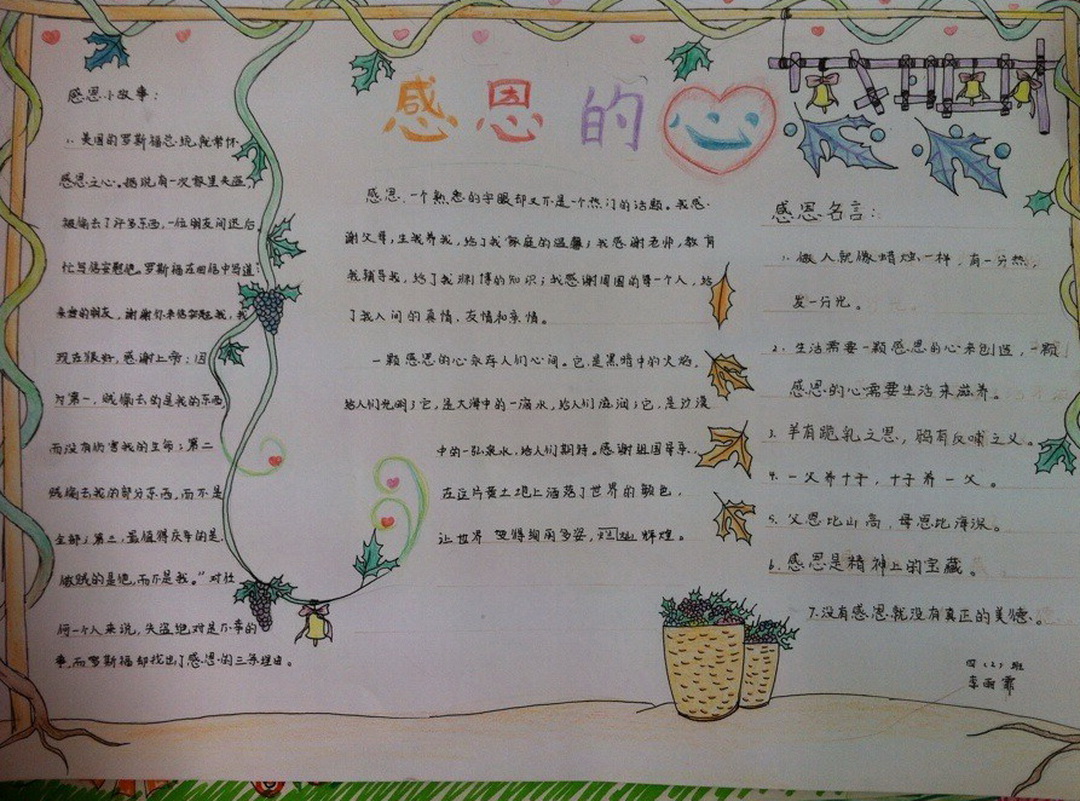 感恩的
感恩小故事：
1、美国的罗斯福总统就常怀
感恩之心。据说有一次家里失盗，
被偷去了许多东西，一位朋友闻迟后，
忙写信安慰他。罗斯福在回信中写道：
亲爱的朋友，谢谢你来信安慰我，我
现在很好，感谢上帝：因
为第一，贼偷去的是我的东西，
而没有伤害我的生命；第二
贼偷去我的部分东西，而不是
全部；第三，最值得庆幸的是，
做贼的是他，而不是我。”对任
何一个人来说，失盗绝对是不幸的
事，而罗斯福却找出了感恩的三条理由。
感恩，一个熟悉的字眼却又不是一个热门的话题。我感
谢父母，生我养我，给了我家庭的温馨；我感谢老师，教育
我辅导我，给了我渊博的知识；我感谢周围的每一个人，给
了我人间的真情、友情和亲情。
一颗感恩的心永存人们心间。它，是黑暗中的火焰，
给人们光明；它，是大海中的一滴水，给人们滋润；它，是沙漠
中的一弘泉水，给人们期待。感谢祖国母亲，
在这片黄土地上洒落了世界的颜色，
让世界变得绚丽多姿，灿烂辉煌。
感恩名言：
1、做人就像蜡烛一样，有一分热，
发一分光。
2、生活需要一颗感恩的心来创造，一颗
感恩的心需要生活来滋养。
3、羊有跪乳之恩，鸦有反哺之义。
4、一父养十子，十子养一父。
5、父恩比山高，母恩比海深。
6、感恩是精神上的宝藏。
7、没有感恩就没有真正的美德。
四（2）班
李雨霏